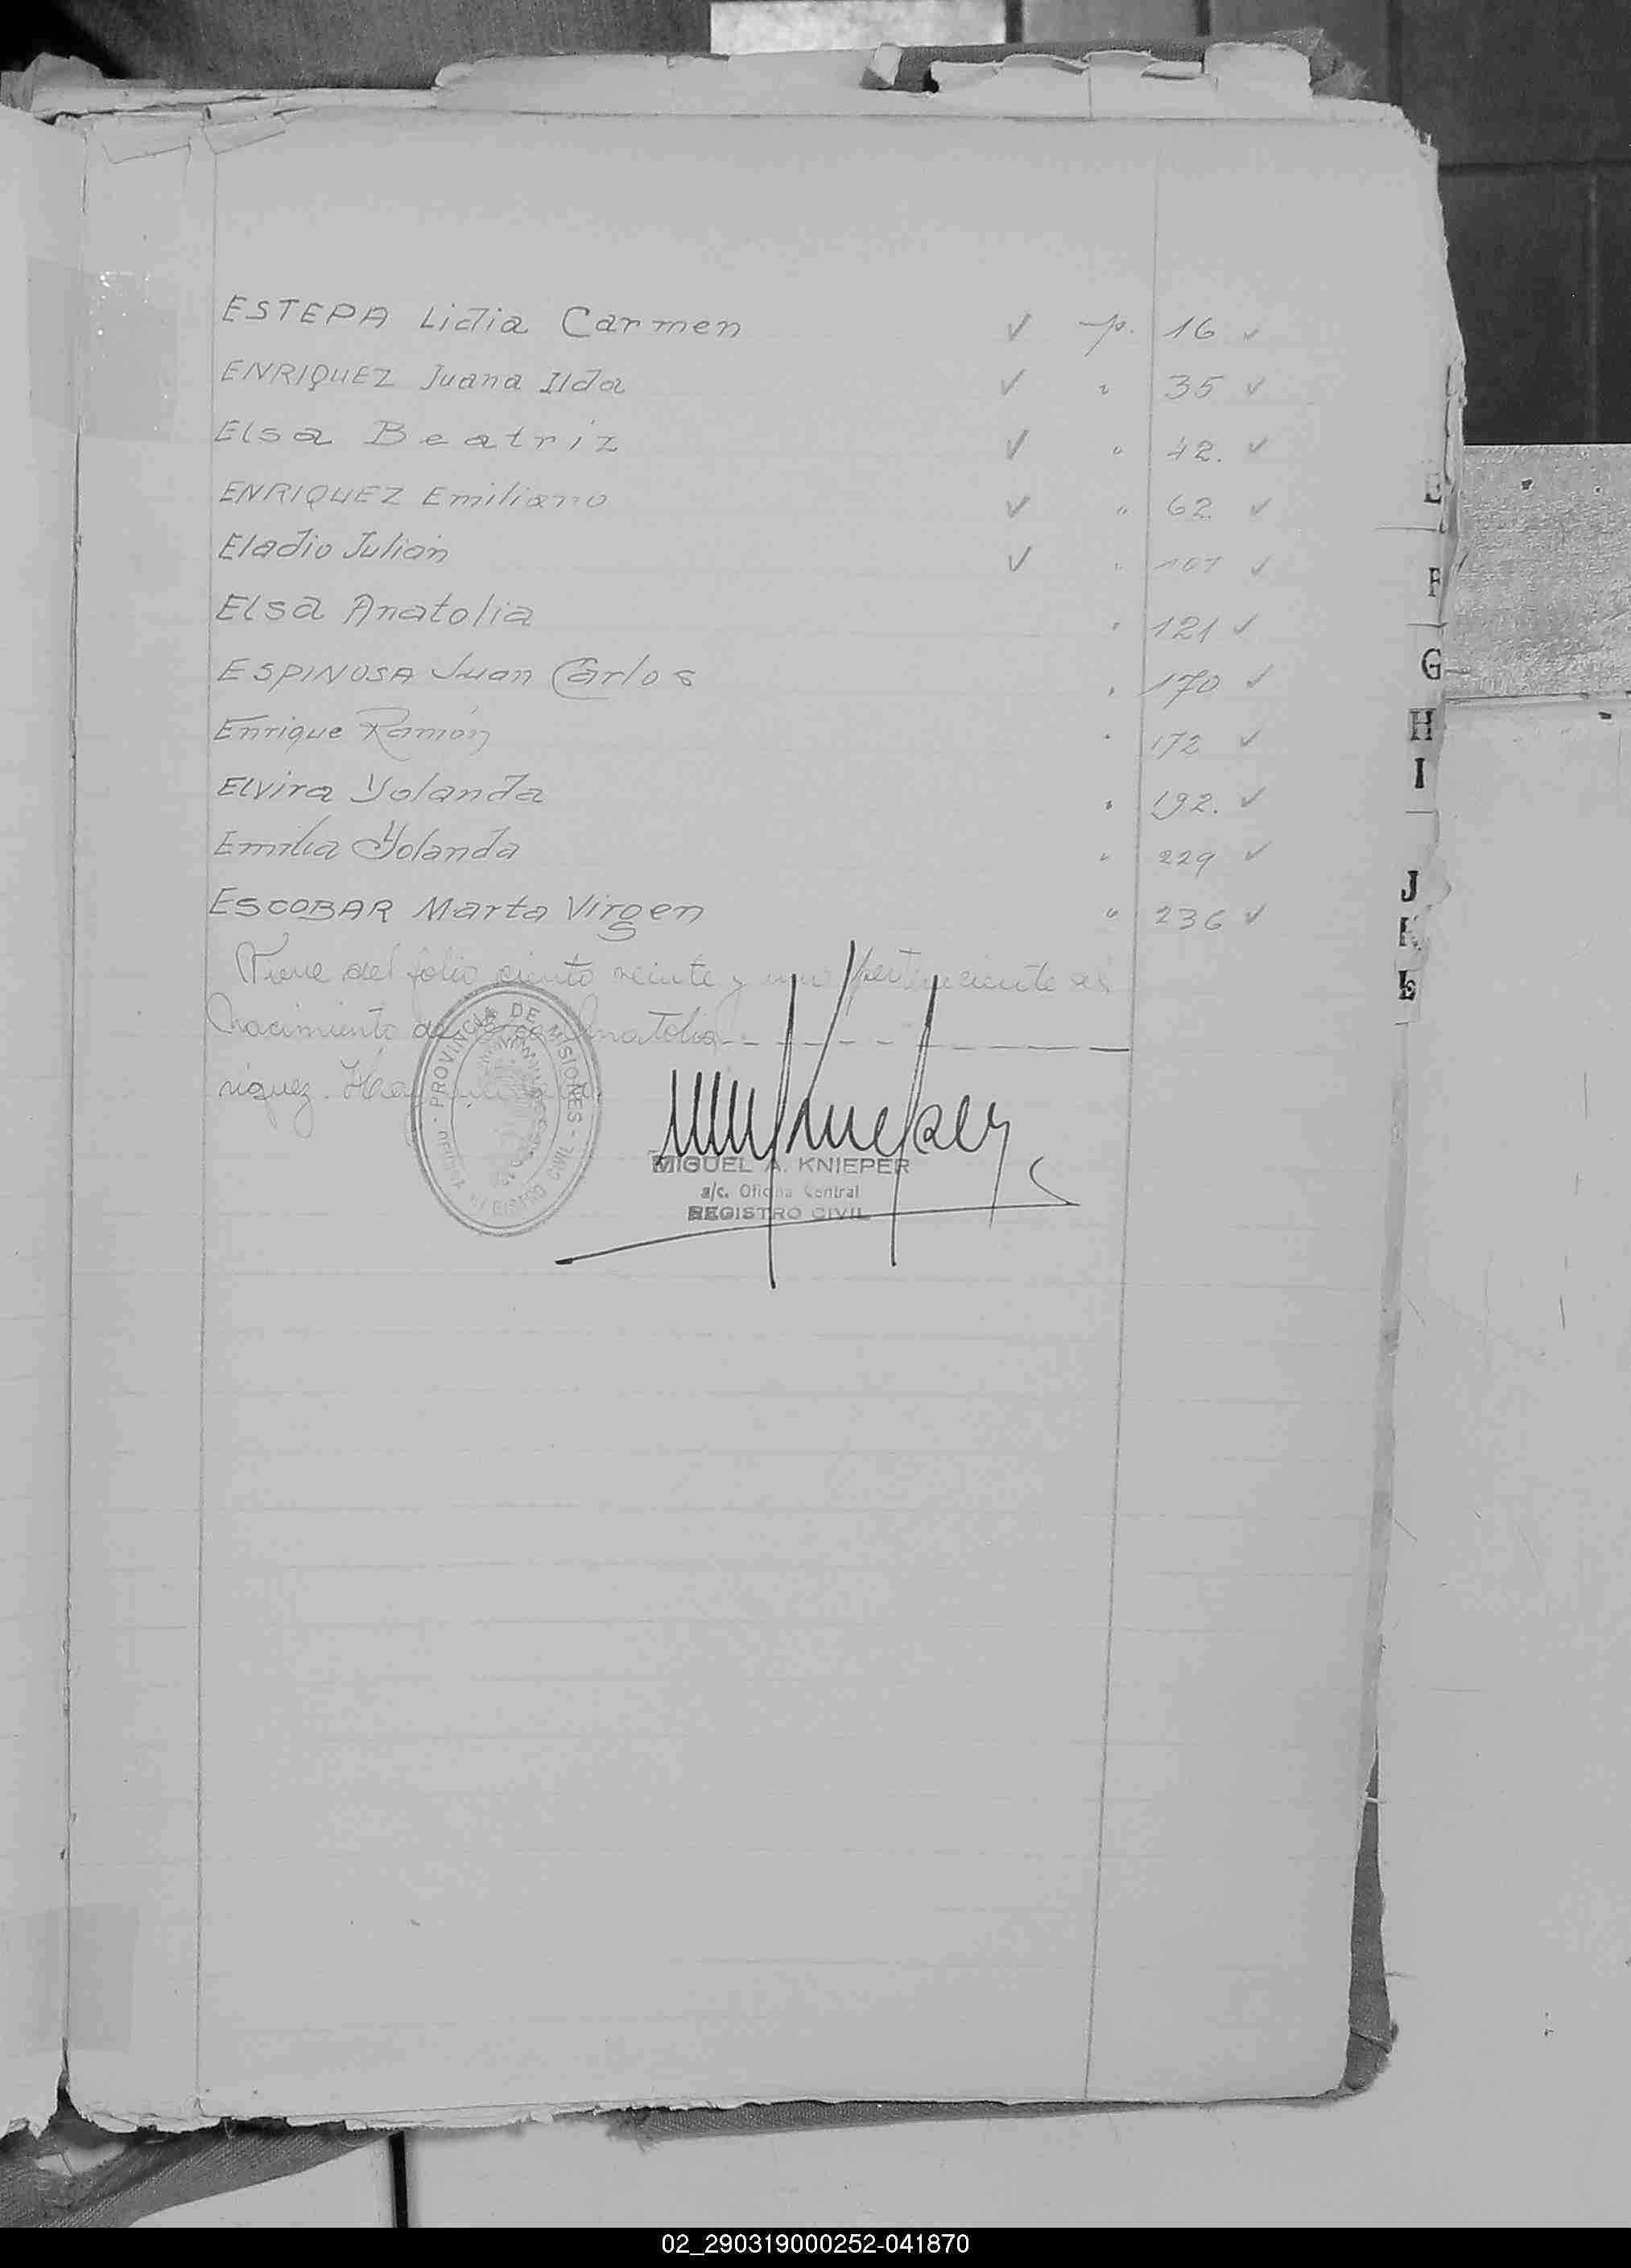 ESTEPA Lidia Carmen ✓ p. 16 ✓
ENRIQUEZ Juana Ilda ✓ " 35 ✓
Elsa Beatriz ✓ " 42. ✓
ENRIQUEZ Emiliano ✓ " 62 ✓
Eladio Julián ✓ " 101 ✓
Elsa Anatolia " 121 ✓
ESPINOSA Juan Carlos " 170 ✓
Enrique Ramón " 172 ✓
Elvira Yolanda " 192. ✓
Emilia Yolanda " 229 ✓
ESCOBAR Marta Virgen " 236 ✓
del folio ciento veinte y uno perteneciente al
Nacimiento de Anatolia
riquez.
PROVINCIA DE MISIONES
REGISTRO CIVIL
MIGUEL A. KNIEPER
a/c. Oficina Central
REGISTRO CIVIL
E
F
G
H
I
J
K
L
02_290319000252-041870